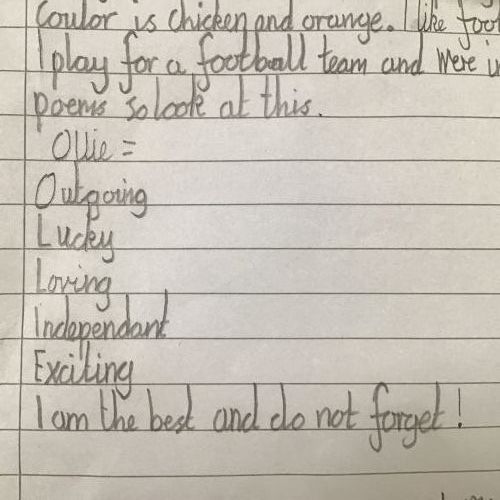 Coulor is chicken and orange. I like foot
I play for a football team and were in
poems so look at this.
Ollie =
Outgoing
Lucky
Loving
Independant
Exciting
I am the best and do not forget!